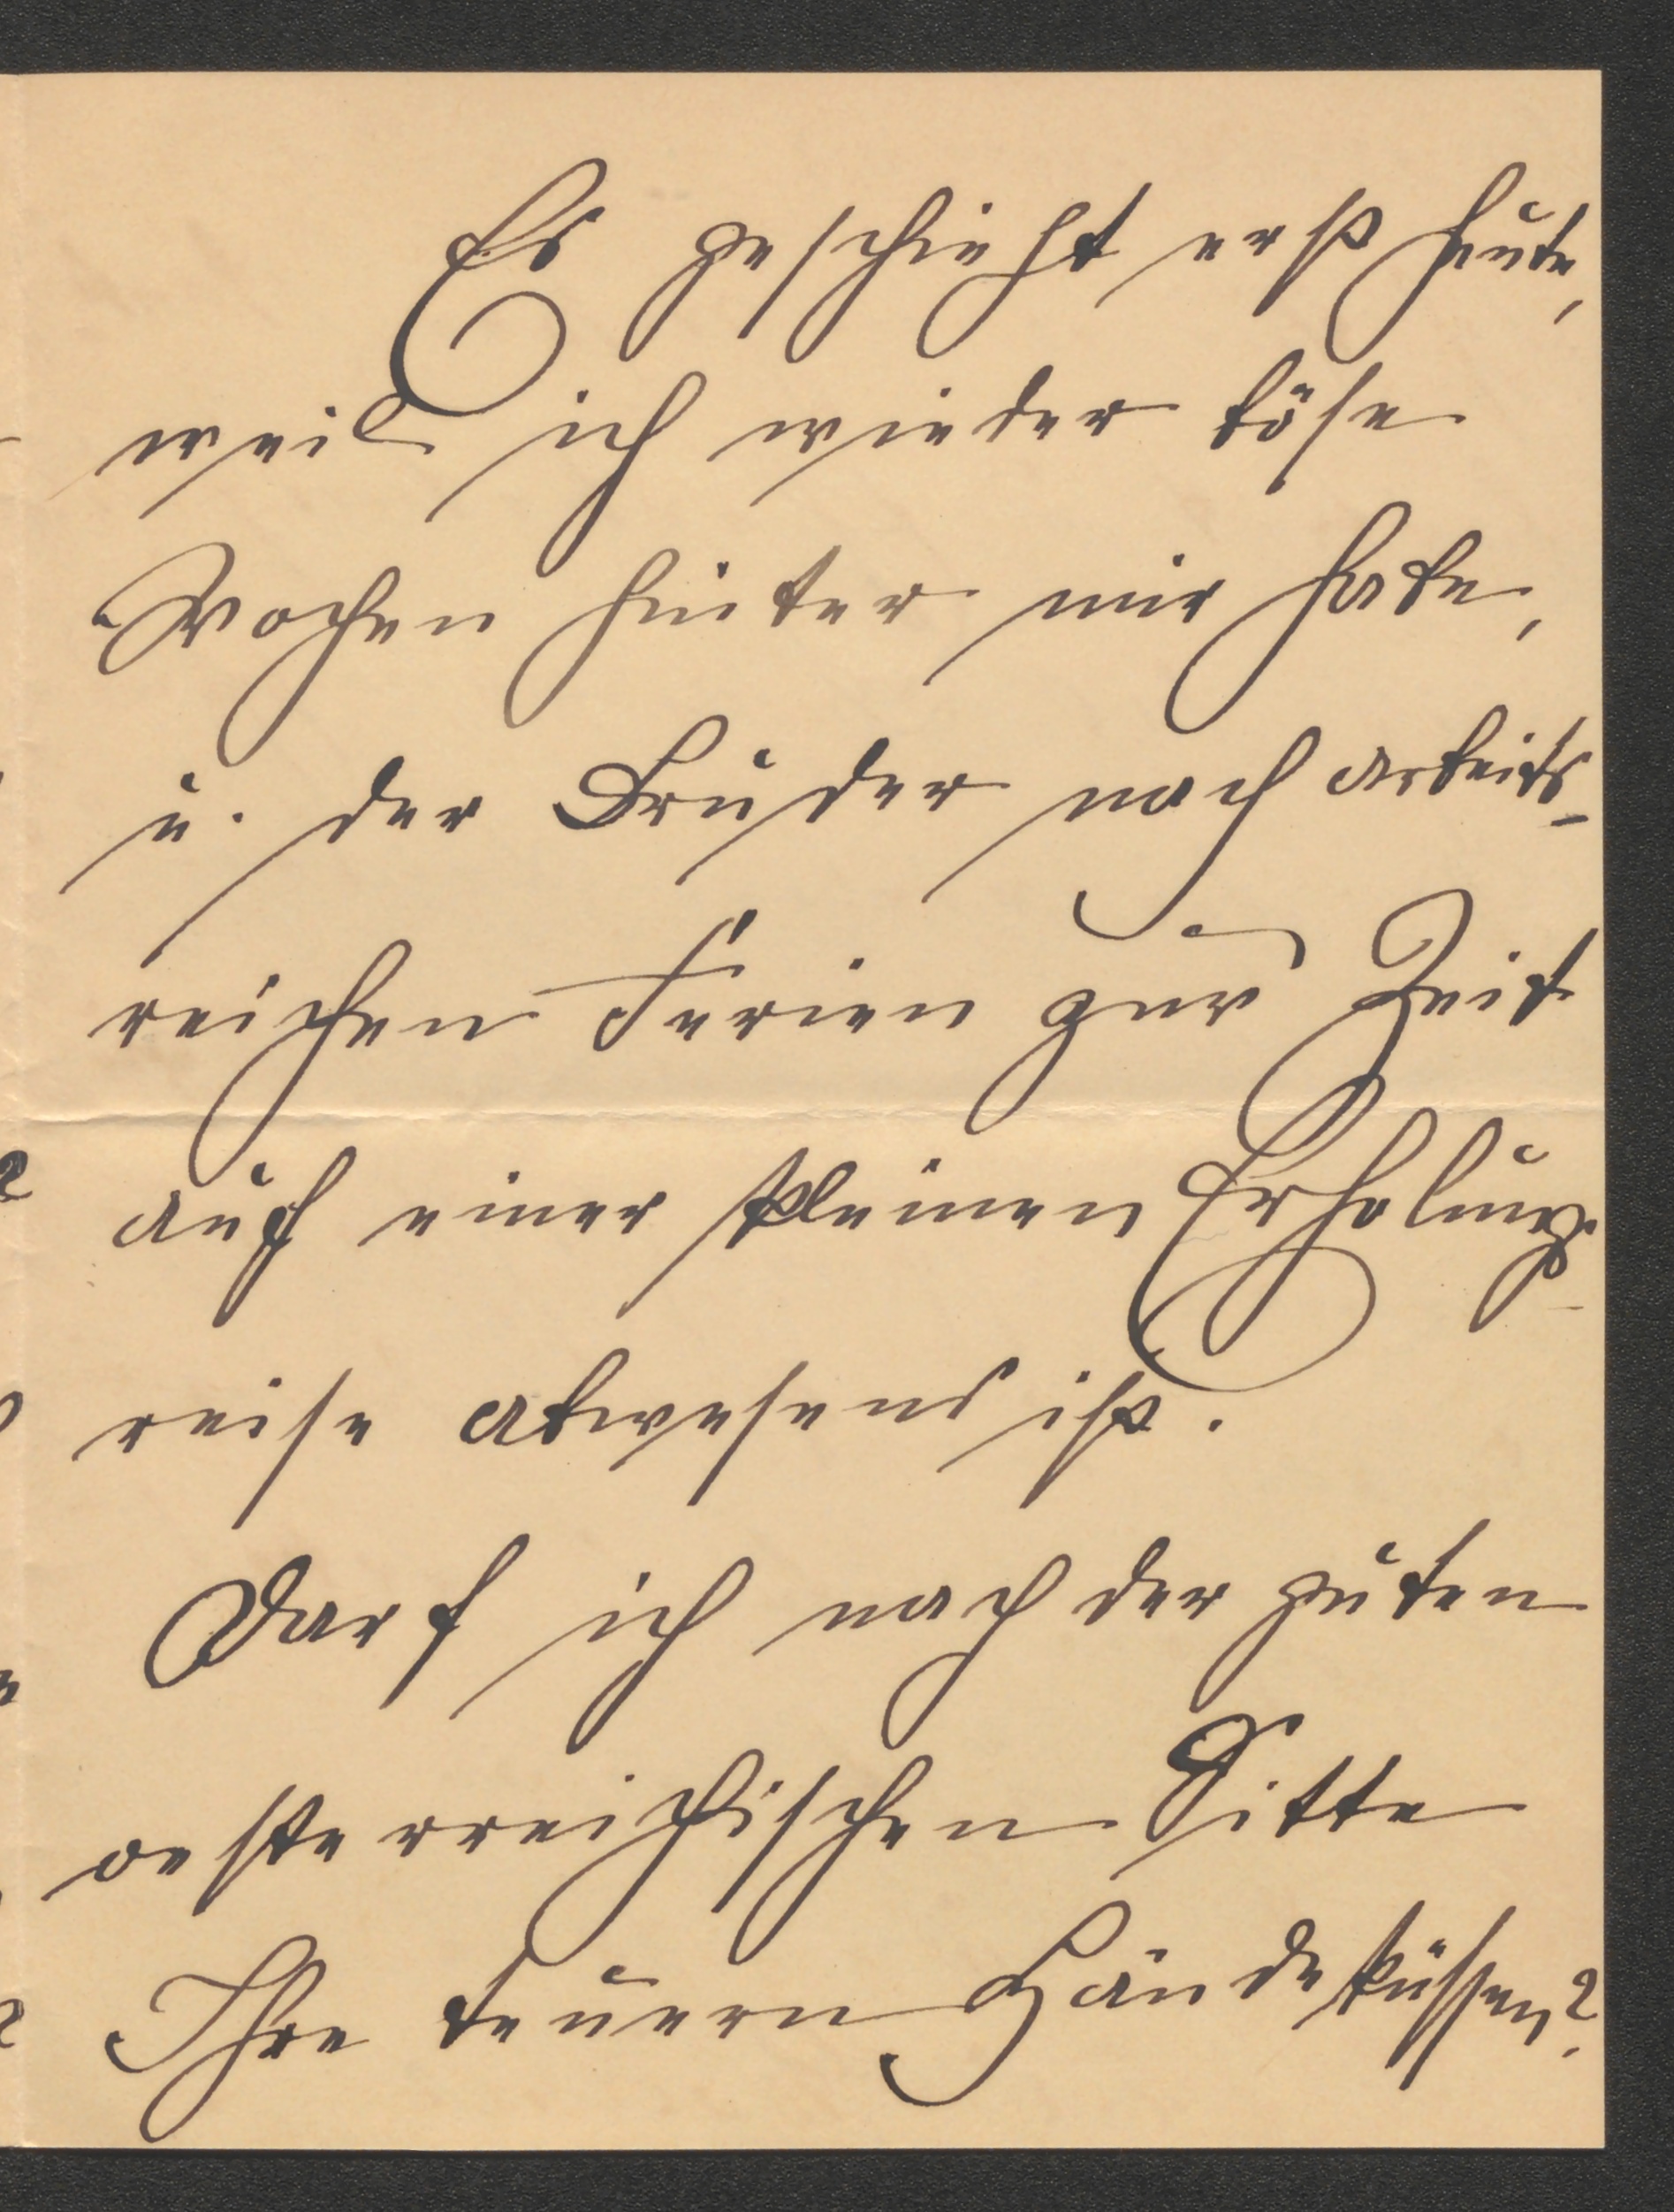 Es geschieht erst heute,
weil ich wieder böse
Wochen hinter mir habe,
u. der Bruder nach arbeits-
reichen Ferien zur Zeit
auf einer kleinen Erholungs-
reise abwesend ist.
Darf ich nach der guten
oesterreichischen Sitte
Ihre teuern Hände küssen?